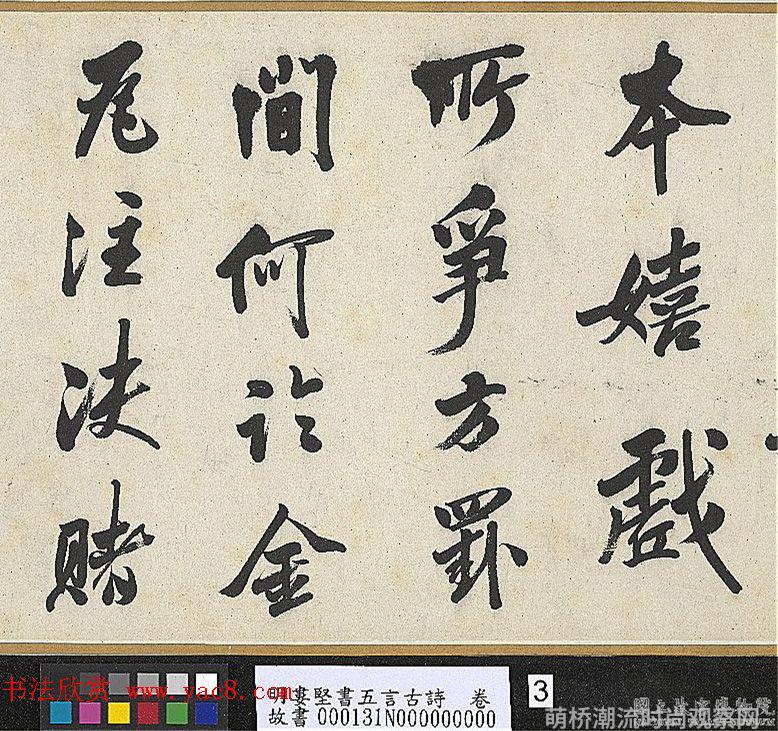 本嬉戲
所爭方罫
間何論金
瓦注決賭
書法欣赏 www.yac8.com
明婁堅書五言古詩 卷
故書 000131N000000000
3
萌桥潮流时尚观察网